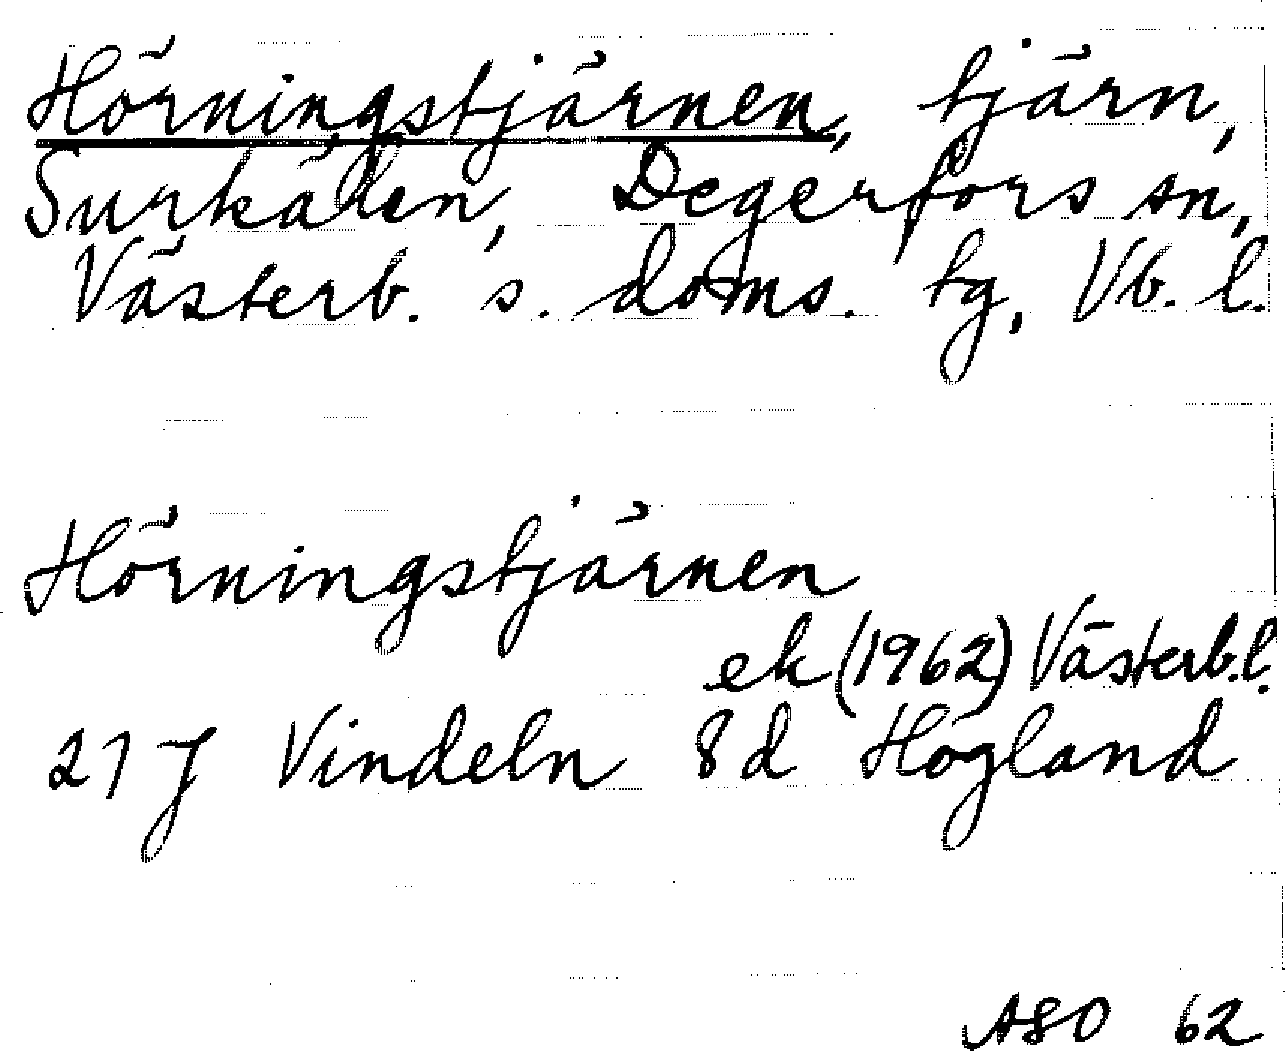 Hörningstjärnen, tjärn,
Surkålen, Degerfors sn,
Västerb. s. doms. tg, Vb. l.
Hörningstjärnen
ek (1962) Västerb. l.
21 J Vindeln 8d Högland
ASO 62